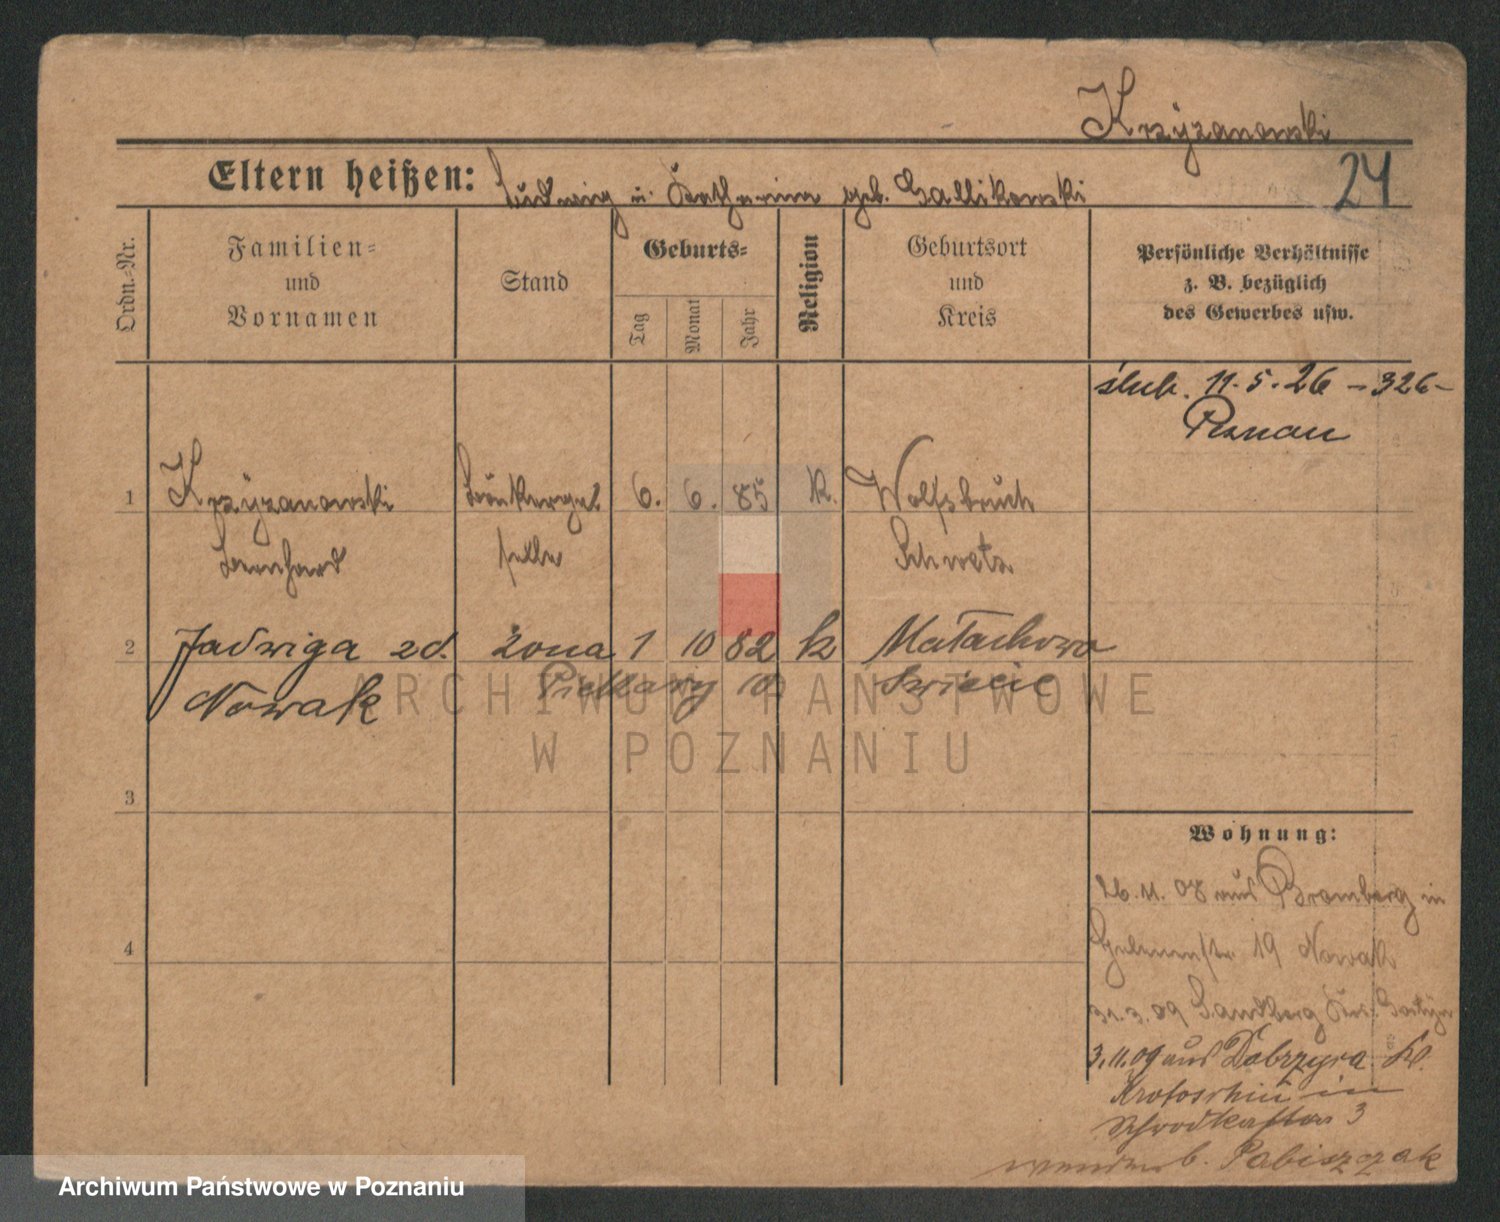 Krzyzanowski
24
Eltern heißen: Ludwig u. Katharina geb. Gallikowski
Ordn.-Nr.
Familien-
und
Vornamen
Stand
Geburts-
Tag
Monat
Jahr
Religion
Geburtsort
und
Kreis
Persönliche Verhältnisse
z. B. bezüglich
des Gewerbes usw.
ślub. 11.5.26 – 326 –
Poznań
1 Krzyzanowski 6. 6. 85 k. Wolfsbruch
Bernhard selle Schwetz
2 Jadwiga zd. żona 1 10 82 k Małachowo
Nowak
ARCHIWUM PAŃSTWOWE
W POZNANIU
3
4
Wohnung:
26.11.08 aus Bromberg in
19 Nowak
31.3.09 Sandberg Kr. Gostyn
3.11.09 aus Dobrzyca Kr.
Krotoschin in
3
b. Pabiszczak
Archiwum Państwowe w Poznaniu